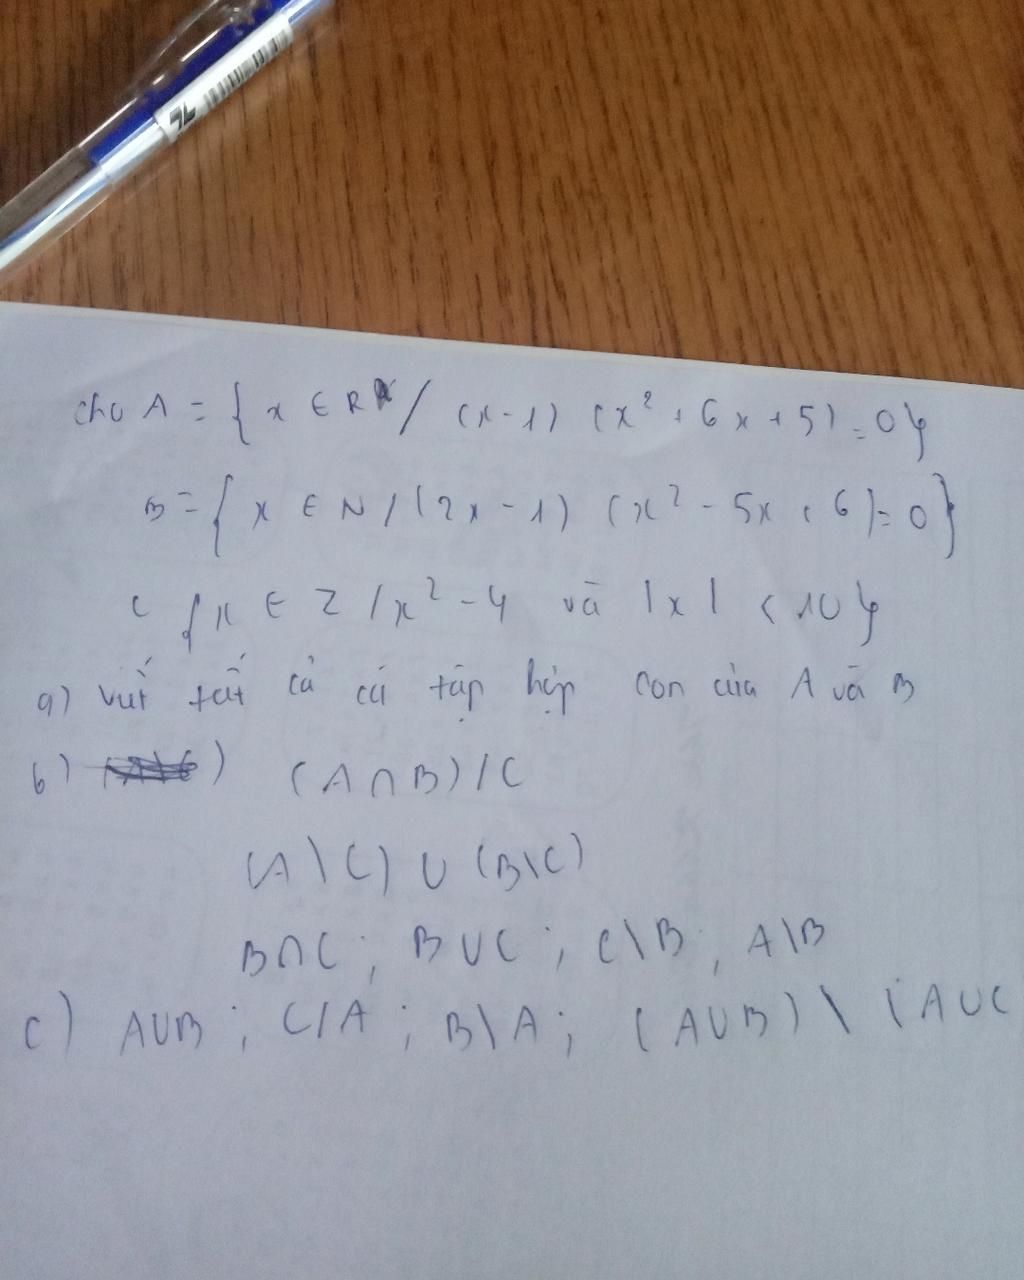 cho A = { x ∈ R / (x-1) (x² + 6x + 5) = 0 }
B = { x ∈ N / (2x - 1) (x² - 5x + 6) = 0 }
C { x ∈ Z / x² - 4 và |x| < 10 }
a) viết tất cả các tập hợp con của A và B
b) (A ∩ B) / C
(A \ C) ∪ (B \ C)
B ∩ C ; B ∪ C ; C \ B ; A \ B
c) A ∪ B ; C / A ; B \ A ; (A ∪ B) \ (A ∪ C